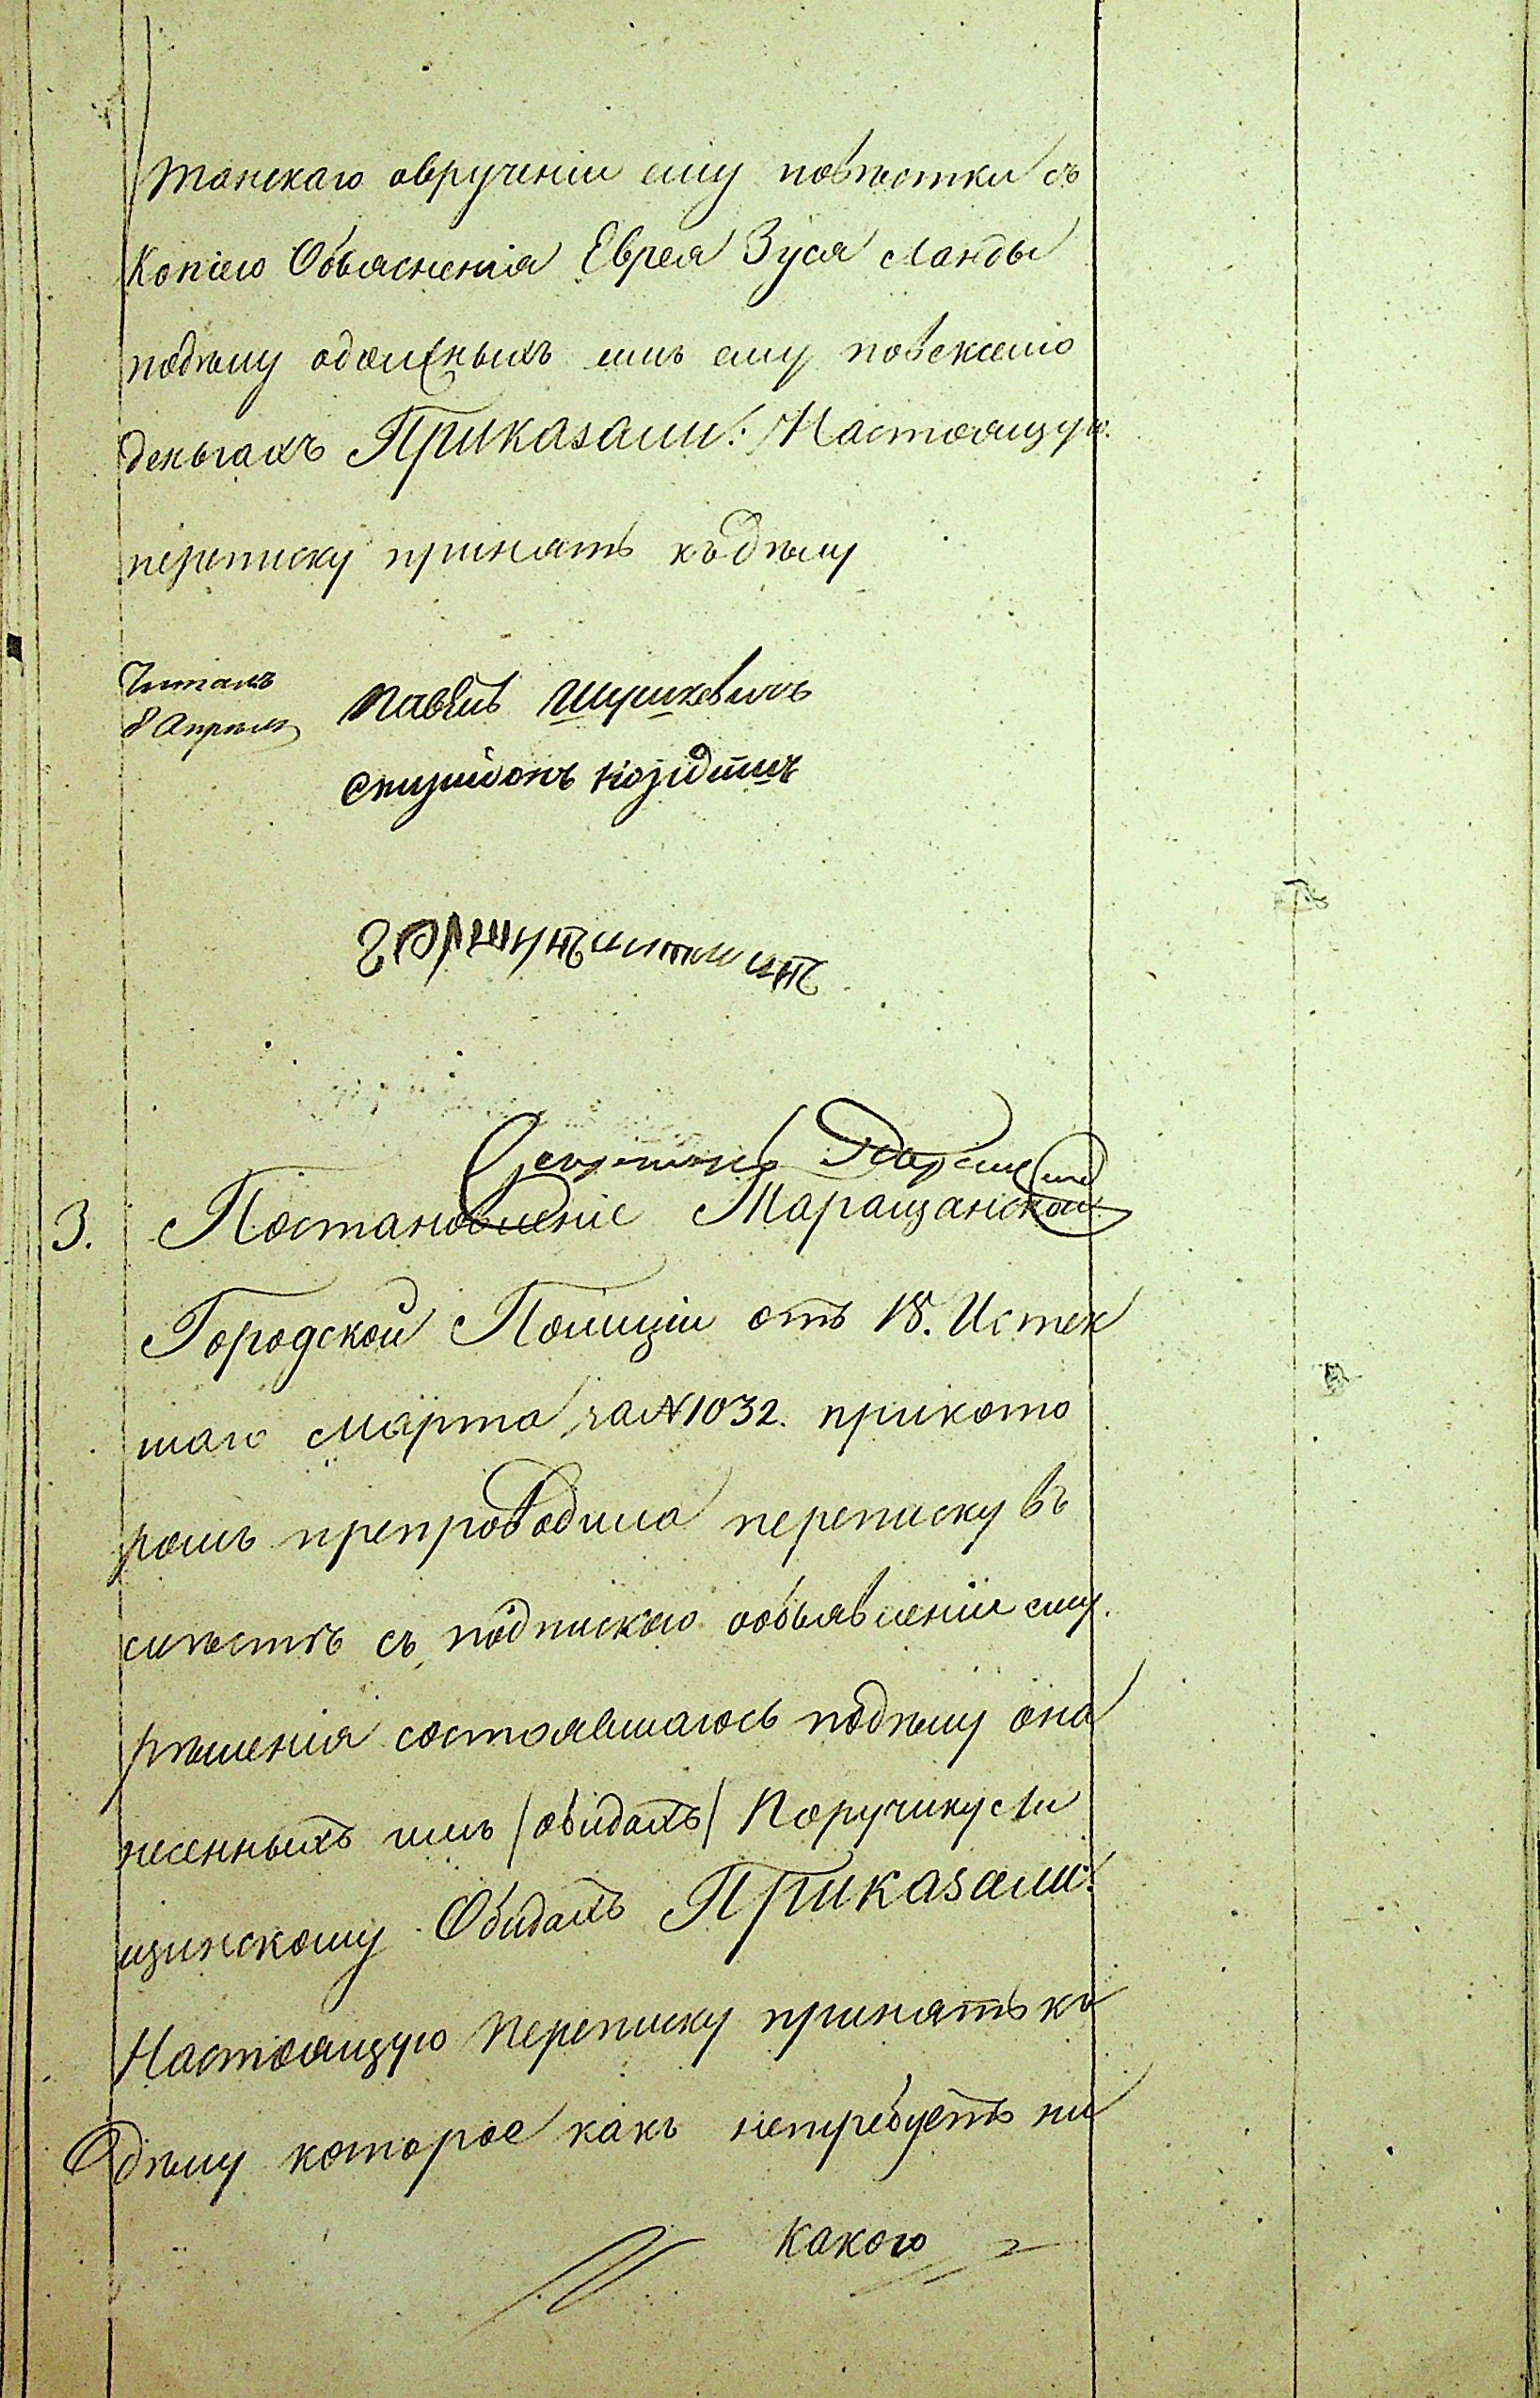 танскаго овручении ему повѣстки съ
Копіею Объясненія Еврея Зуся Ланды
подѣлу одолженыхъ имъ ему повекселю
деньгахъ Приказали: Настоящую
переписку принять къ дѣлу
Читалъ
8 Апрѣля
Павелъ
Секретарь
3. Постановленіе Таращанской
Городской Полиціи отъ 18. Истек
шаго Марта за № 1032. прикото
ромъ препроводила переписку въ
мѣстѣ съ подпискою ообъявленіи ему
рѣшенія состоявшагось подѣлу она
несенныхъ имъ /обидахъ/ Поручику Ли
щинскому Обидахъ Приказали:
Настоящую Переписку принять къ
дѣлу которое какъ нетребуетъ ни
какого